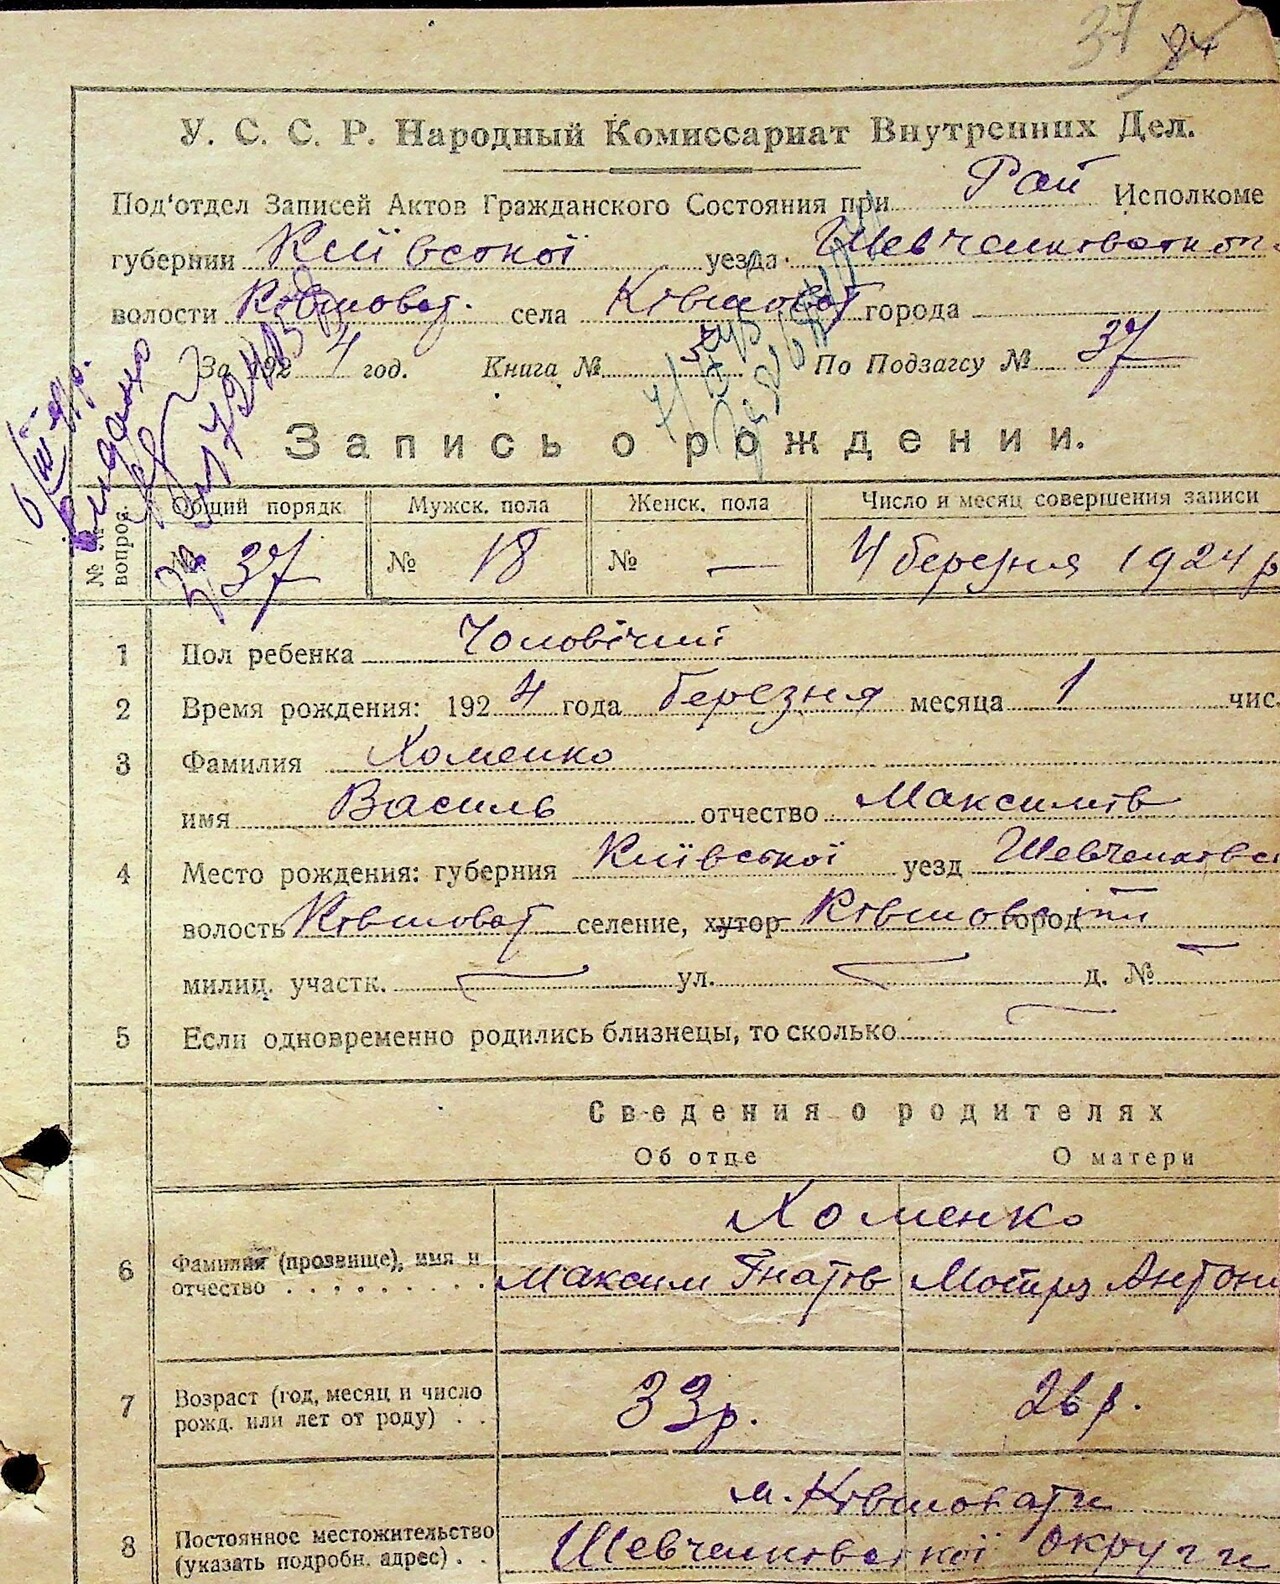 37 84
У. С. С. Р. Народный Комиссариат Внутренних Дел.
Под'отдел Записей Актов Гражданского Состояния при Рай Исполкоме
губернии Київської уезда Шевченковської
волости Ківшоват. села Ківшоват города
За 1924 год. Книга № По Подзагсу № 37
Запись о рождении.
№№ вопрос. Общий порядк. Мужск. пола Женск. пола Число и месяц совершения записи
№ 37 № 18 № — 4 березня 1924 р
1 Пол ребенка Чоловічий
2 Время рождения: 1924 года березня месяца 1 чис.
3 Фамилия Хоменко
имя Василь отчество Максимів
4 Место рождения: губерния Київської уезд Шевченківсь
волость Ківшоват селение, хутор Ківшовати город —
милиц. участк. — ул. — д. № —
5 Если одновременно родились близнецы, то сколько —
Сведения о родителях
Об отце О матери
Хоменко
6 Фамилия (прозвище), имя и
отчество . . . . . . . . . Максим Гнатів Мотря Антон
7 Возраст (год, месяц и число
рожд. или лет от роду) . . 33 р. 26 р.
м. Ківшовати
8 Постоянное местожительство
(указать подробн. адрес) . . Шевченківської округи